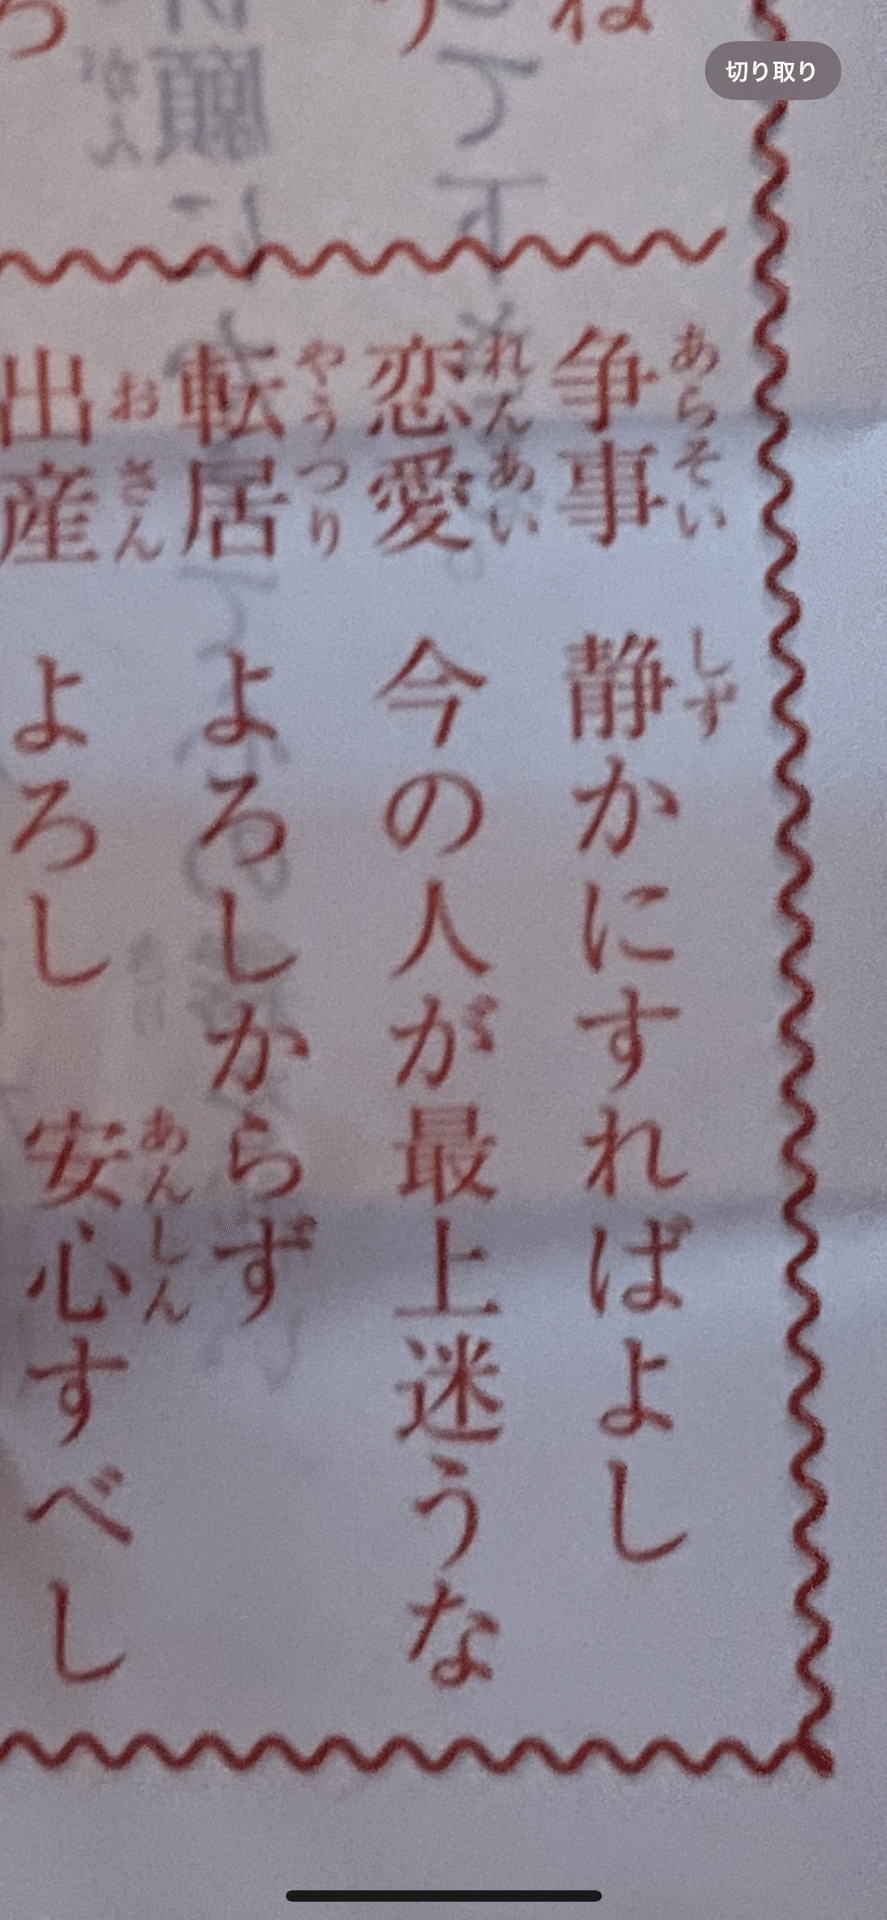 切り取り
争事 静かにすればよし
あらそい しず
恋愛 今の人が最上迷うな
れんあい
転居 よろしからず
やうつり
出産 よろし 安心すべし
おさん あんしん